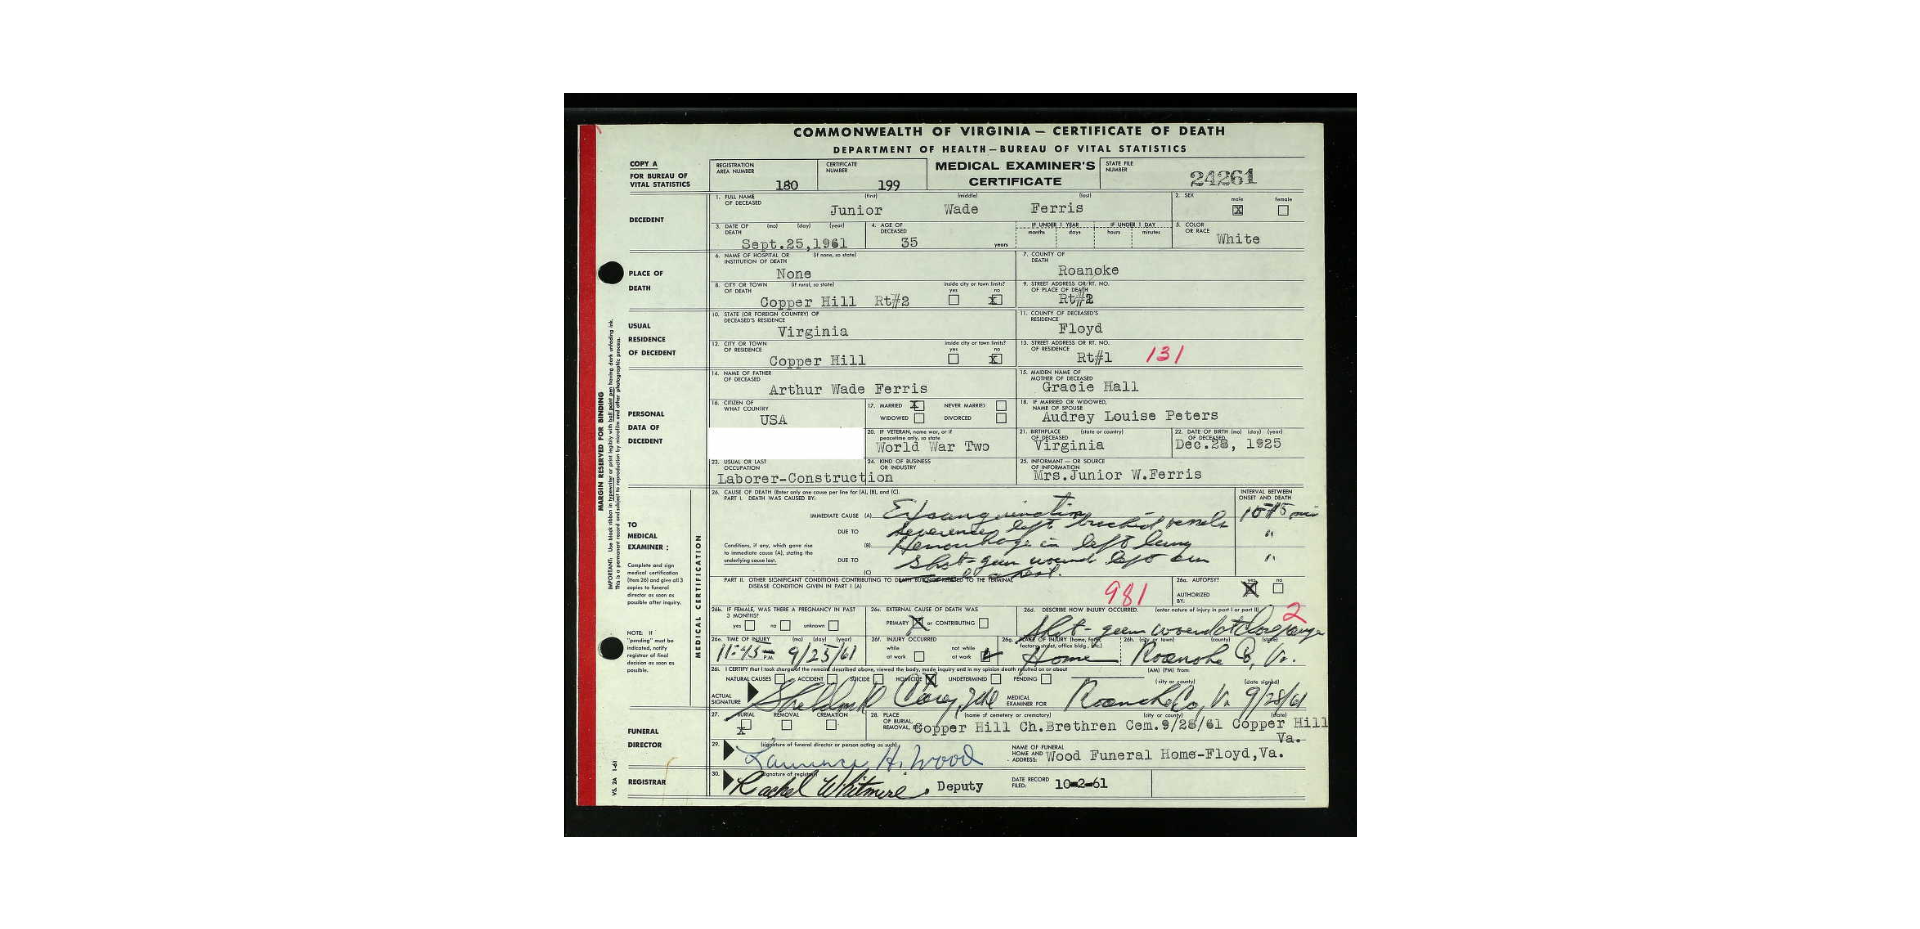 COMMONWEALTH OF VIRGINIA — CERTIFICATE OF DEATH
DEPARTMENT OF HEALTH—BUREAU OF VITAL STATISTICS
COPY A
FOR BUREAU OF
VITAL STATISTICS
REGISTRATION AREA NUMBER 180
CERTIFICATE NUMBER 199
MEDICAL EXAMINER'S CERTIFICATE
STATE FILE NUMBER 24261
DECEDENT
1. FULL NAME OF DECEASED (first) (middle) (last)
Junior Wade Ferris
2. SEX male X female
3. DATE OF DEATH (mo) (day) (year)
Sept.25,1961
4. AGE OF DECEASED 35 years
IF UNDER 1 YEAR months days
IF UNDER 1 DAY hours minutes
5. COLOR OR RACE White
PLACE OF DEATH
6. NAME OF HOSPITAL OR INSTITUTION OF DEATH (if none, so state)
None
7. COUNTY OF DEATH
Roanoke
8. CITY OR TOWN OF DEATH (if rural, so state)
Copper Hill Rt#2
inside city or town limits? yes no X
9. STREET ADDRESS OR RT. NO. OF PLACE OF DEATH
Rt#2
USUAL RESIDENCE OF DECEDENT
10. STATE (OR FOREIGN COUNTRY) OF DECEASED'S RESIDENCE
Virginia
11. COUNTY OF DECEASED'S RESIDENCE
Floyd
12. CITY OR TOWN OF RESIDENCE
Copper Hill
inside city or town limits? yes no X
13. STREET ADDRESS OR RT. NO. OF RESIDENCE
Rt#1 131
PERSONAL DATA OF DECEDENT
14. NAME OF FATHER OF DECEASED
Arthur Wade Ferris
15. MAIDEN NAME OF MOTHER OF DECEASED
Gracie Hall
16. CITIZEN OF WHAT COUNTRY
USA
17. MARRIED X NEVER MARRIED
WIDOWED DIVORCED
18. IF MARRIED OR WIDOWED, NAME OF SPOUSE
Audrey Louise Peters
20. IF VETERAN, name war, or if peacetime only, so state
World War Two
21. BIRTHPLACE OF DECEASED (state or country)
Virginia
22. DATE OF BIRTH OF DECEASED (mo) (day) (year)
Dec.28, 1925
23. USUAL OR LAST OCCUPATION
Laborer-Construction
24. KIND OF BUSINESS OR INDUSTRY
25. INFORMANT — OR SOURCE OF INFORMATION
Mrs.Junior W.Ferris
MARGIN RESERVED FOR BINDING
TO MEDICAL EXAMINER:
Complete and sign medical certification (Item 26) and give all 3 copies to funeral director as soon as possible after inquiry.
NOTE: If "pending" must be indicated, notify registrar of final decision as soon as possible.
MEDICAL CERTIFICATION
26. CAUSE OF DEATH (Enter only one cause per line for (A), (B), and (C).
PART I. DEATH WAS CAUSED BY:
INTERVAL BETWEEN ONSET AND DEATH
IMMEDIATE CAUSE (A) Exsanguination
DUE TO left brachial vessels
Conditions, if any, which gave rise to immediate cause (A), stating the underlying cause last.
(B) Hemorrhage in left lung
DUE TO Shot-gun wound left arm
(C) and chest.
PART II. OTHER SIGNIFICANT CONDITIONS CONTRIBUTING TO DEATH BUT NOT RELATED TO THE TERMINAL DISEASE CONDITION GIVEN IN PART I (A)
981
26a. AUTOPSY? yes X no
AUTHORIZED BY:
26b. IF FEMALE, WAS THERE A PREGNANCY IN PAST 3 MONTHS?
yes no unknown
26c. EXTERNAL CAUSE OF DEATH WAS
PRIMARY X or CONTRIBUTING
26d. DESCRIBE HOW INJURY OCCURRED. (enter nature of injury in part I or part II)
2
Shot-gun wound at close range
26e. TIME OF INJURY (mo) (day) (year)
11:45 P.M. 9/25/61
26f. INJURY OCCURRED
while at work not while at work
26g. PLACE OF INJURY (home, farm, factory, street, office bldg., etc.)
Home
26h. (city or town) (county) (state)
Roanoke Co, Va.
26i. I CERTIFY that I took charge of the remains described above, viewed the body, made inquiry and in my opinion death resulted on or about (AM) (PM) from:
NATURAL CAUSES ACCIDENT SUICIDE HOMICIDE X UNDETERMINED PENDING
(city or county) (date signed)
ACTUAL SIGNATURE
MEDICAL EXAMINER FOR Roanoke Co, Va. 9/28/61
FUNERAL DIRECTOR
27. BURIAL X REMOVAL CREMATION
28. PLACE OF BURIAL, REMOVAL, (name of cemetery or crematory) (city or county) (state)
Copper Hill Ch.Brethren Cem.9/28/61 Copper Hill
Va.
29. (signature of funeral director or person acting as such)
Lawrence H. Wood
NAME OF FUNERAL HOME AND ADDRESS: Wood Funeral Home-Floyd,Va.
REGISTRAR
30. (signature of registrar)
Rachel Whitmire, Deputy
DATE RECORD FILED: 10-2-61
VS. 2A 1-61